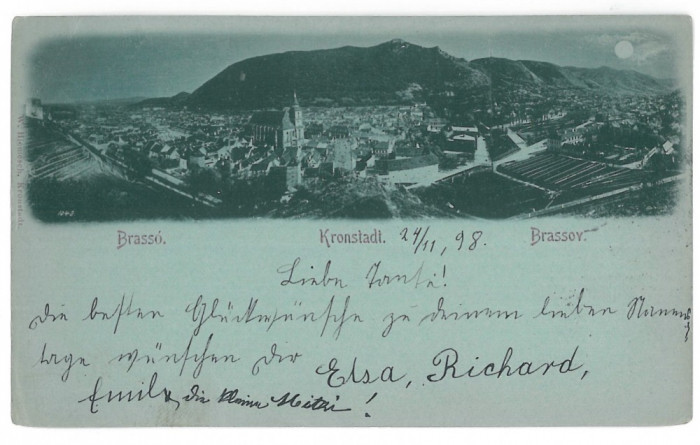 W. Hiemesch, Kronstadt.
1242
Brassó. Kronstadt. 24/11, 98. Brassov.
Liebe Tante!
die besten Glückwünsche zu deinem lieben Namens
tage wünschen Dir Elsa, Richard,
Emil & die kleine Mitzi!